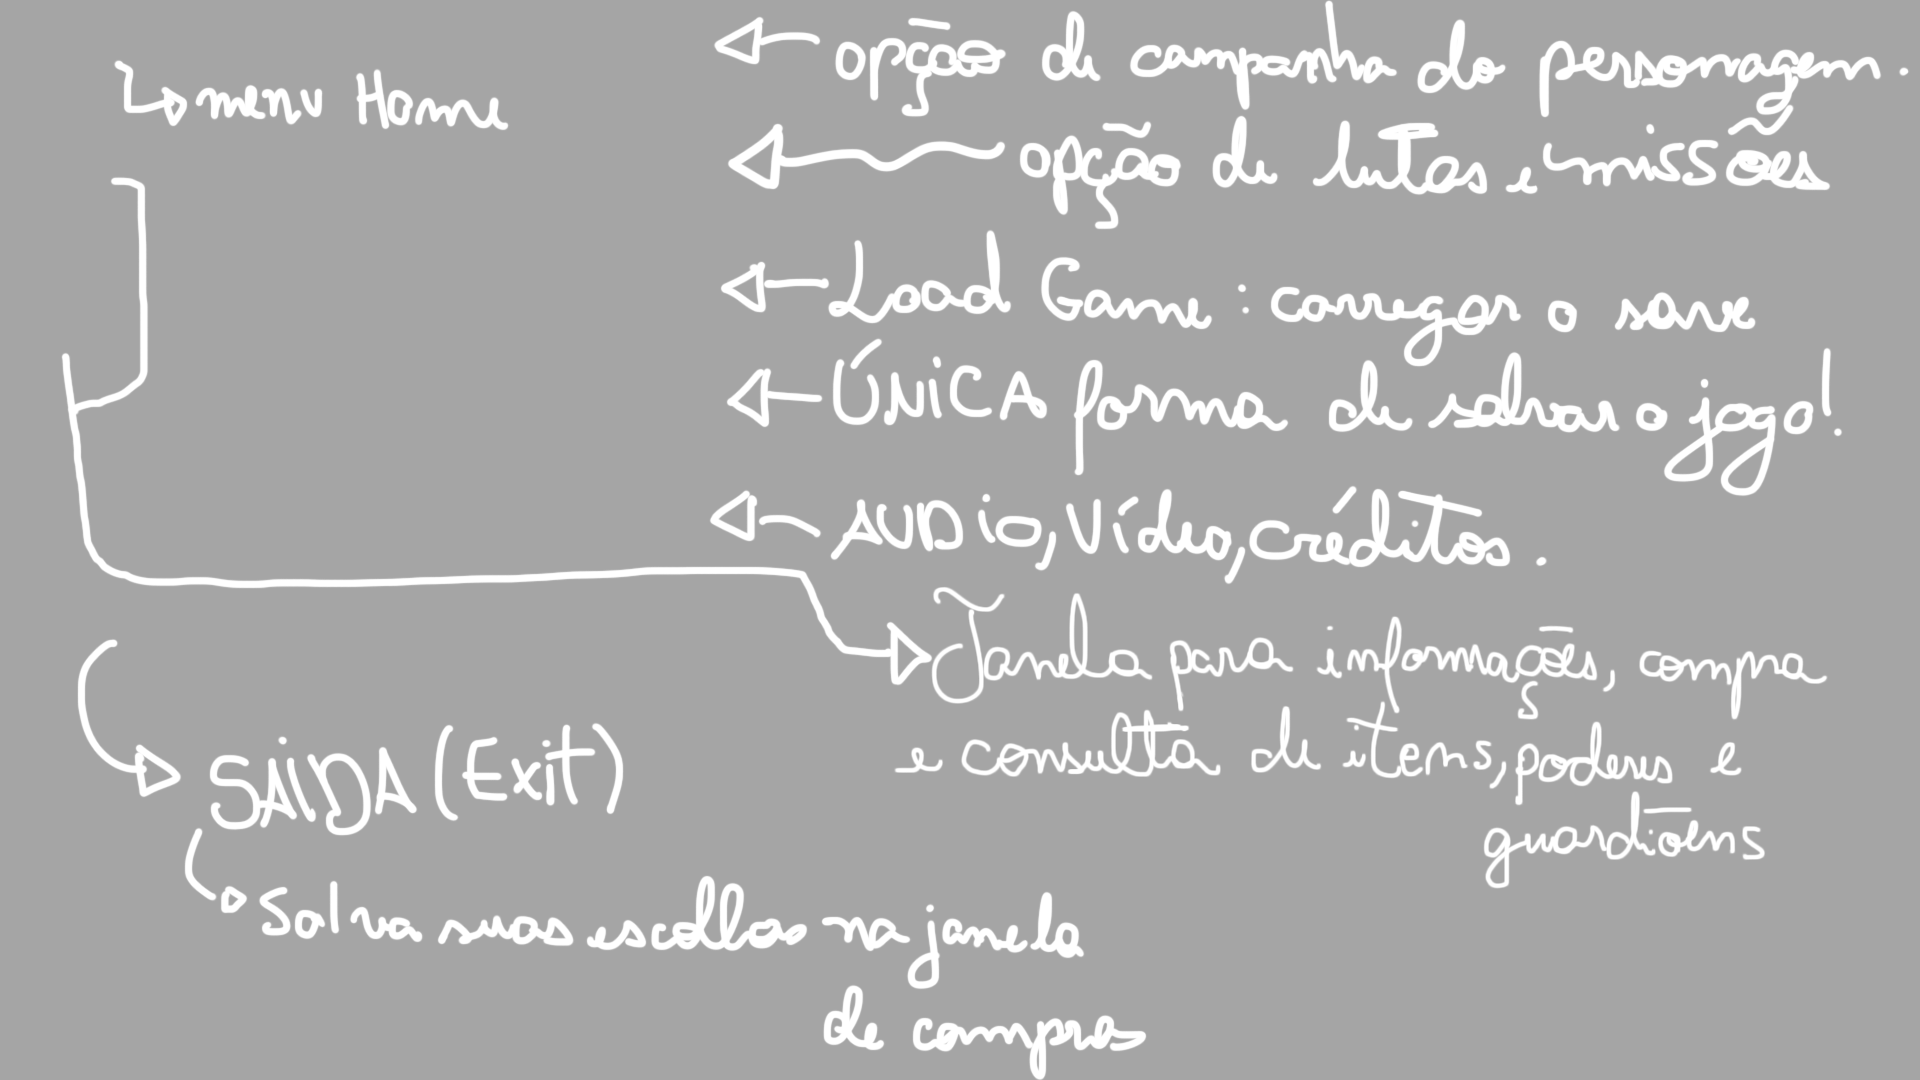 menu Home
opção de campanha do personagem.
opção de lutas e missões
Load Game : carregar o save
ÚNiCA forma de salvar o jogo!
AUDio, Vídeo, créditos.
Janela para informações, compra
e consulta de itens, poderes e
guardiõens
SAÍDA (Exit)
Salva suas escolhas na janela
de compras